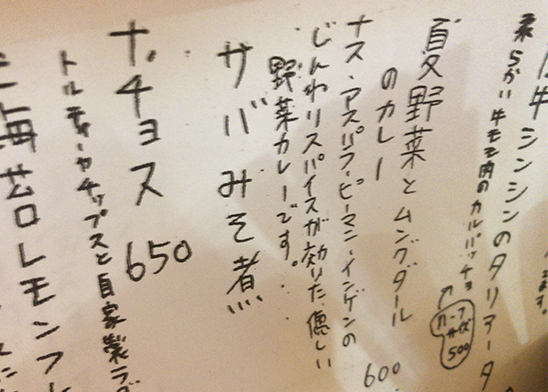 牛シンシンのタリアータ
柔らかい牛モモ肉のカルパッチョ
ハーフサイズ
500
夏野菜とムングダール
のカレー
600
ナス・アスパラ・ピーマン・インゲンの
じんわりスパイスが効いた優しい
野菜カレーです。
サバみそ煮
ナチョス 650
トルティーヤチップスと自家製
海苔ロレモン